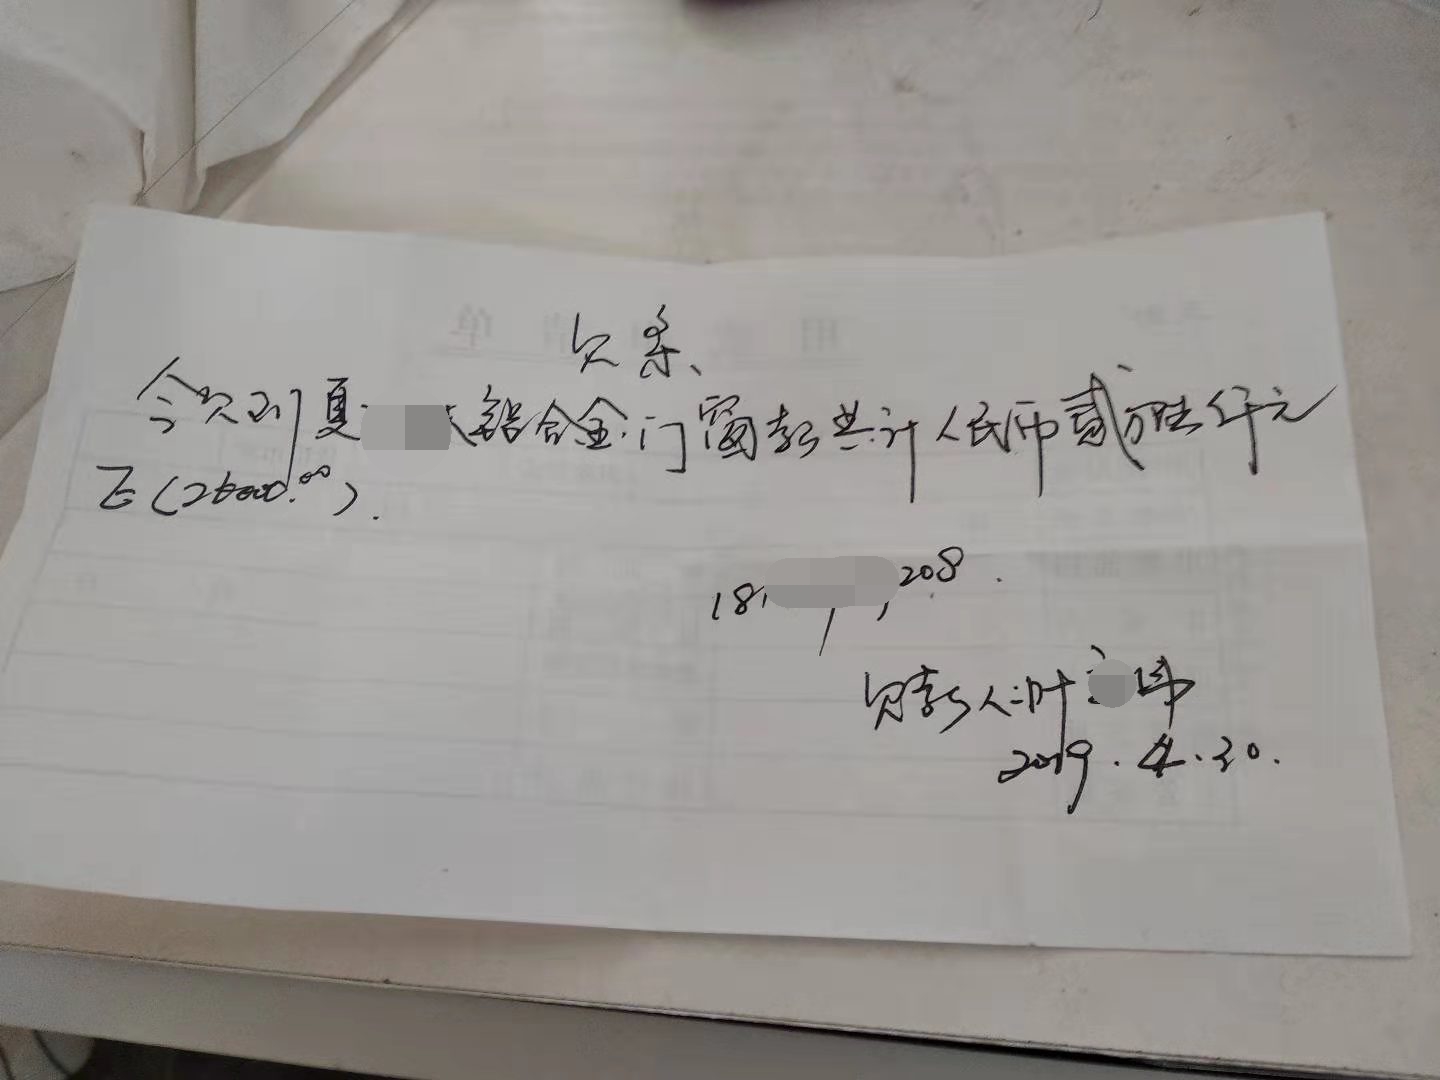 欠条、
今欠到夏 铝合金门窗款共计人民币贰万陆仟元
正(26000.00).
18 208.
欠款人:叶 伟
2019.4.30.